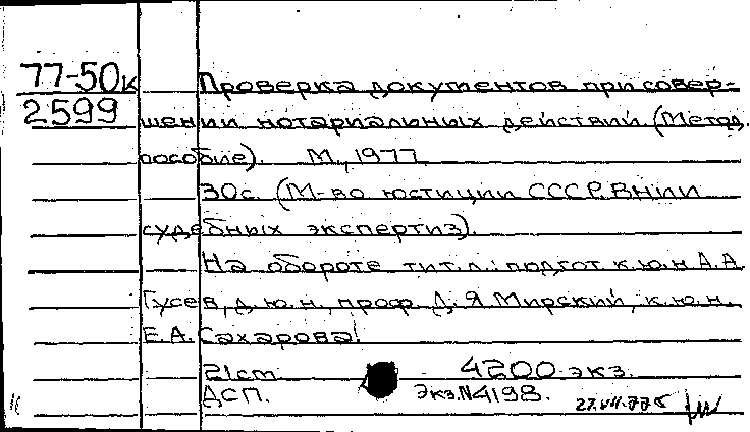 77-50к
2599
Проверка документов при совер-
шении нотариальных действий (Метод.
пособие). М., 1977.
30с. (М-во юстиции СССР. ВНИИ
судебных экспертиз).
На обороте тит.л.: подгот. к.ю.н. А.А.
Гусев, д.ю.н., проф. Д.Я.Мирский, к.ю.н.
Е.А. Сахарова.
21cm 4200 экз.
ДСП. Экз.N4198.